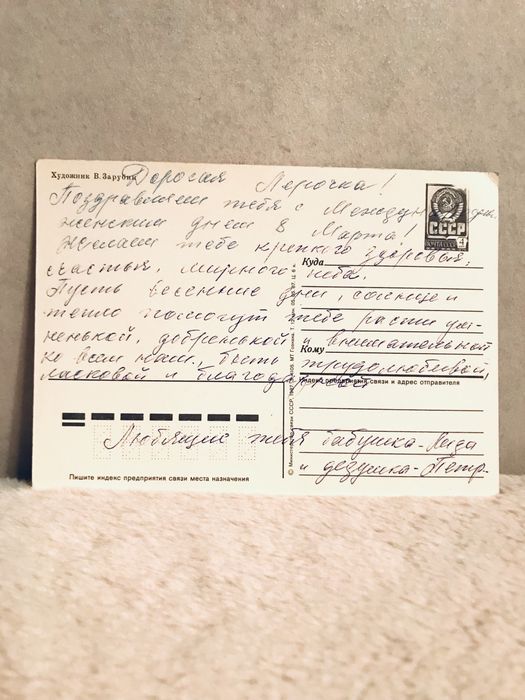 Художник В. Зарубин
Дорогая Лерочка!
Поздравляем тебя с Междунар.
женским днем 8 Марта!
Желаем тебе крепкого здоровья,
счастья, мирного неба.
Пусть весенние дни, солнце и
тепло помогут тебе расти ум-
ненькой, добренькой и внимательной
ко всем нам, быть трудолюбивой,
ласковой и благодарной
Любящие тебя бабушка-Лида
и дедушка-Петр.
СССР
ПОЧТА СССР
4
Куда
Кому
Индекс предприятия связи и адрес отправителя
Пишите индекс предприятия связи места назначения
© Министерство связи СССР, 1987